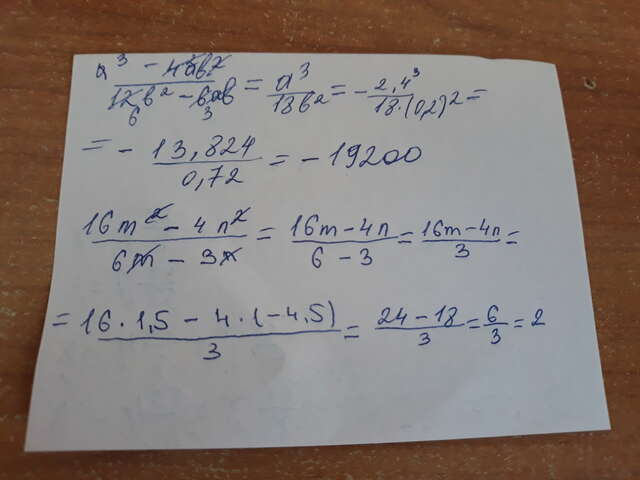 a³ - 4ab² / 12b² - 6ab = a³ / 18b² = - 2,4³ / 18·(0,2)² =
6 3
= - 13,824 / 0,72 = - 19200
16m² - 4n² / 6m - 3n = 16m - 4n / 6 - 3 = 16m - 4n / 3 =
= 16·1,5 - 4·(-4,5) / 3 = 24 - 18 / 3 = 6 / 3 = 2